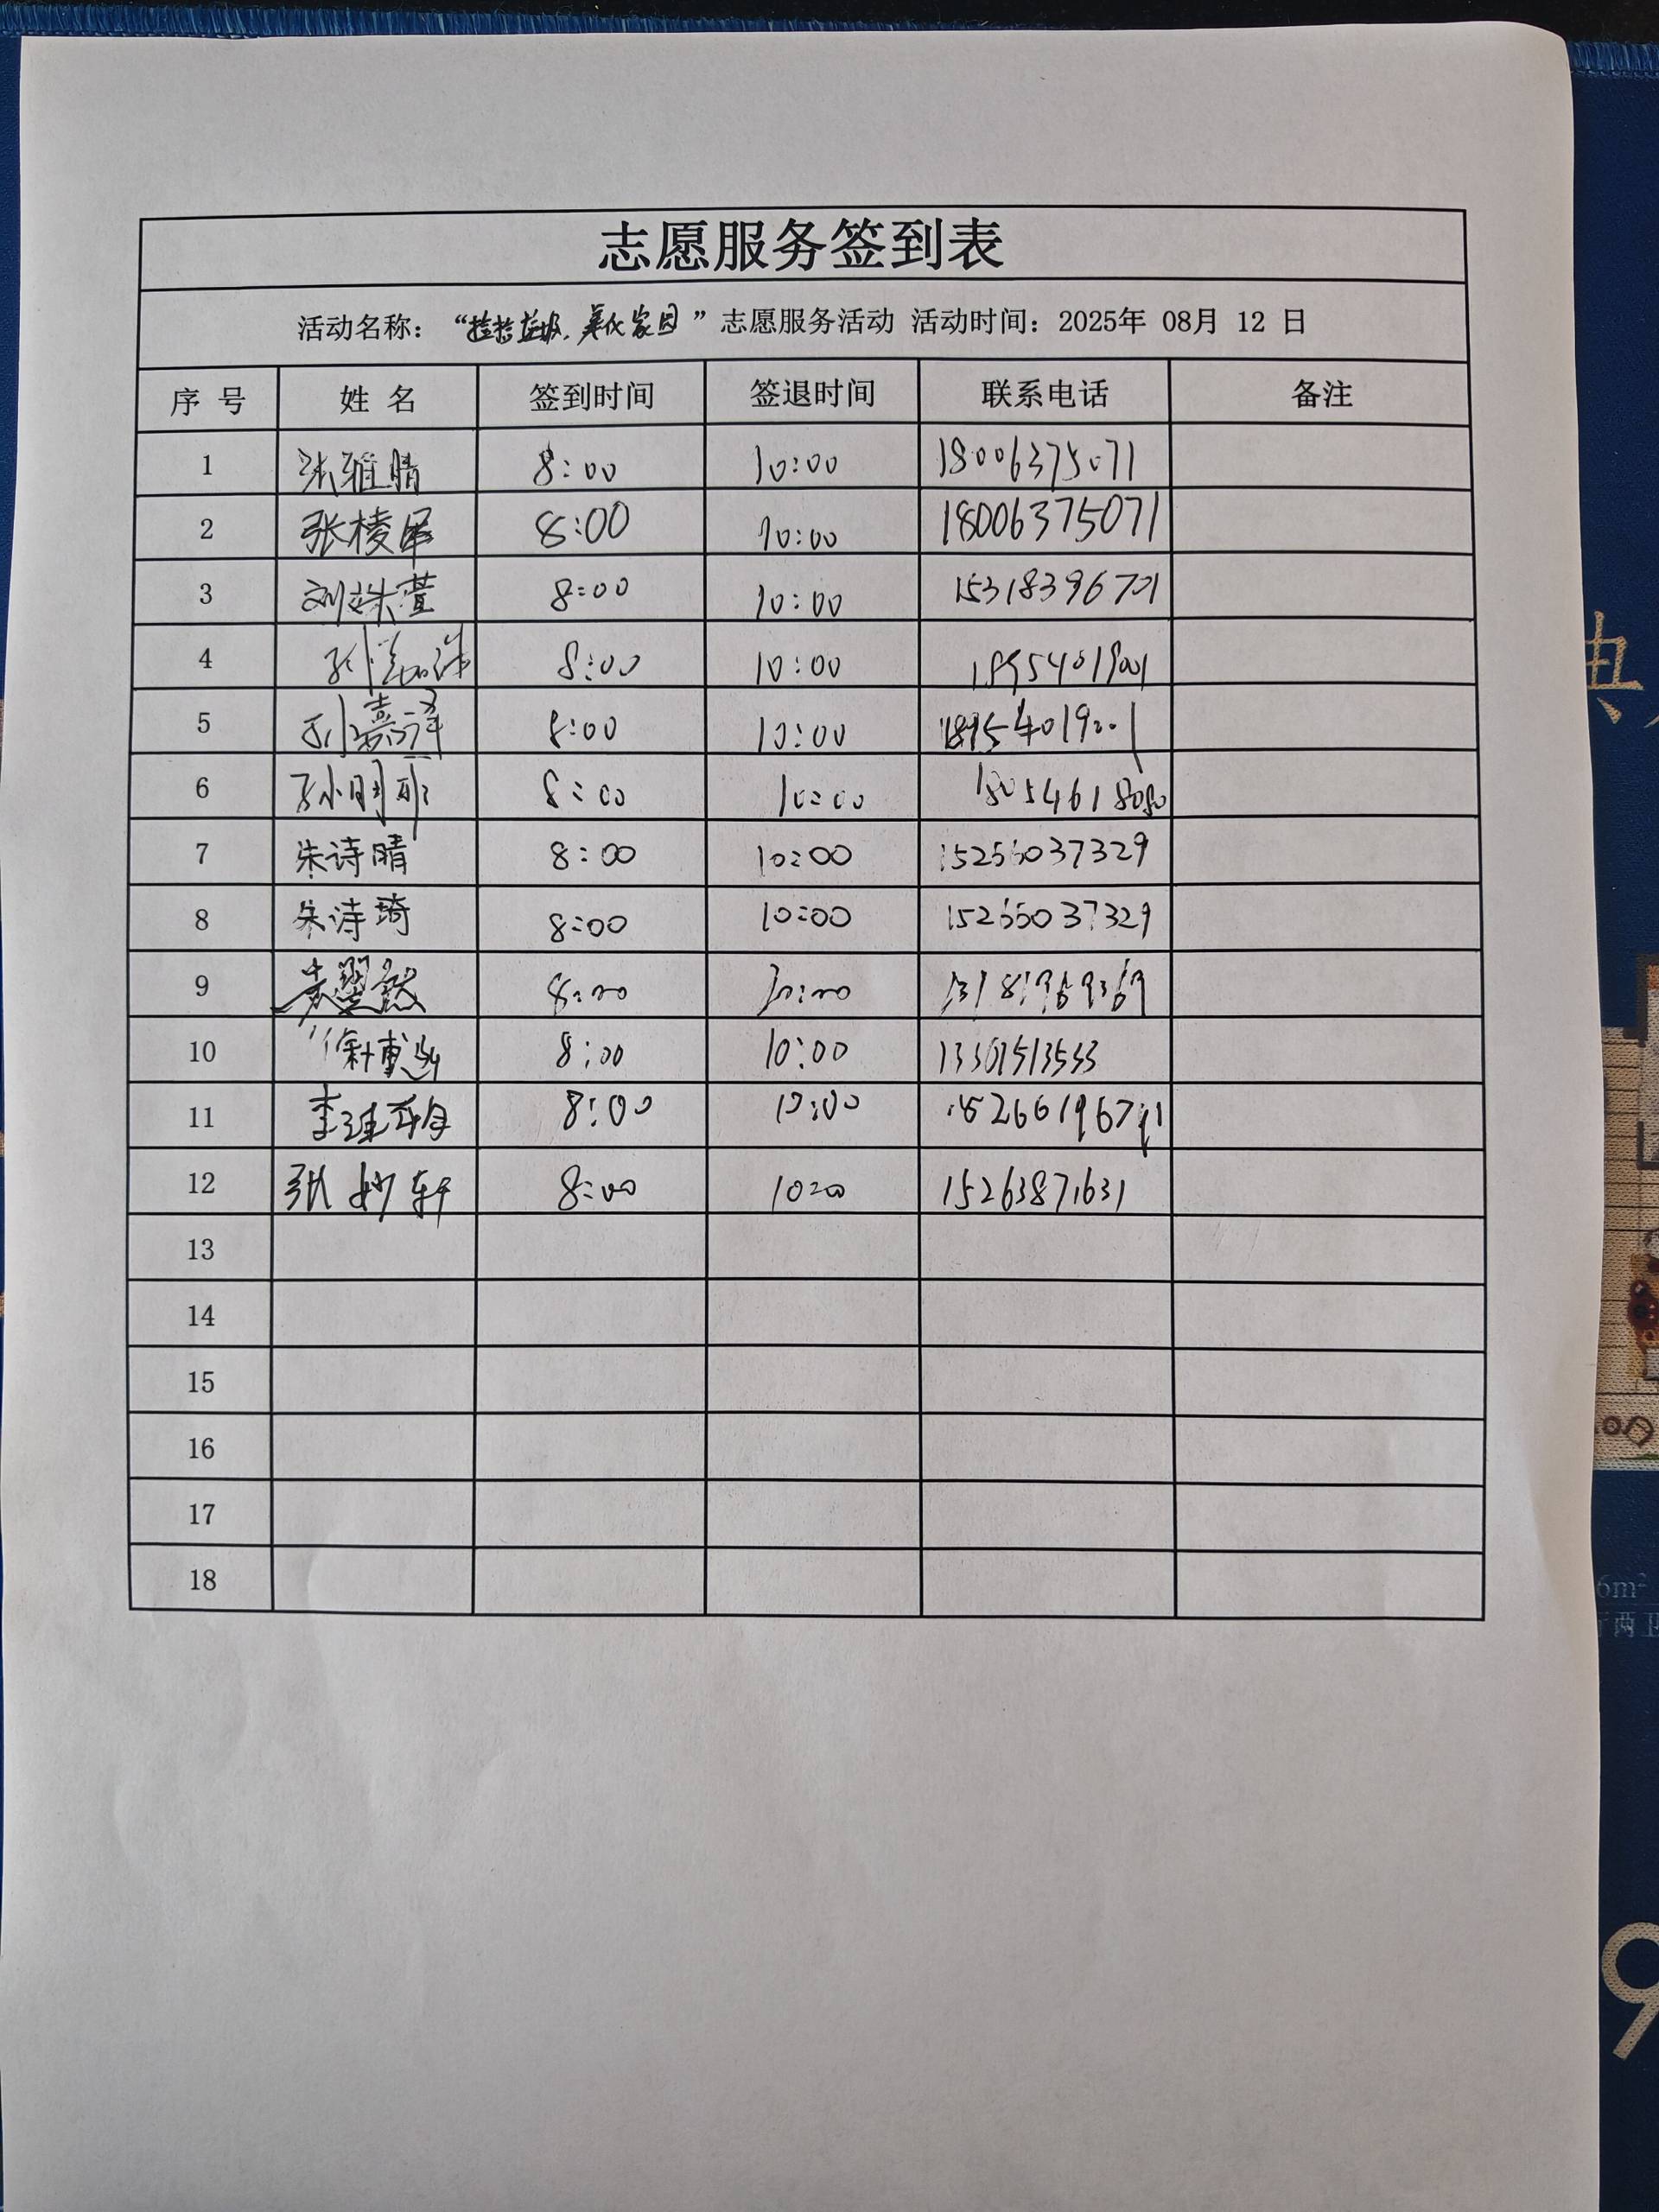 志愿服务签到表
活动名称：“捡拾垃圾，美化家园”志愿服务活动 活动时间：2025年 08月 12 日
序 号 姓 名 签到时间 签退时间 联系电话 备注
1 张雅晴 8:00 10:00 18006375071
2 张棱犀 8:00 10:00 18006375071
3 刘姝萱 8:00 10:00 15318396701
4 8:00 10:00 18954019001
5 孙嘉泽 8:00 10:00 18954019001
6 8:00 10:00 18054618080
7 朱诗晴 8:00 10:00
8 朱诗琦 8:00 10:00 15266037329
9 8:00 10:00
10 8:00 10:00
11 8:00 10:00
12 张妙轩 8:00 10:00 15263871631
13
14
15
16
17
18
典
6m²
两卫
9